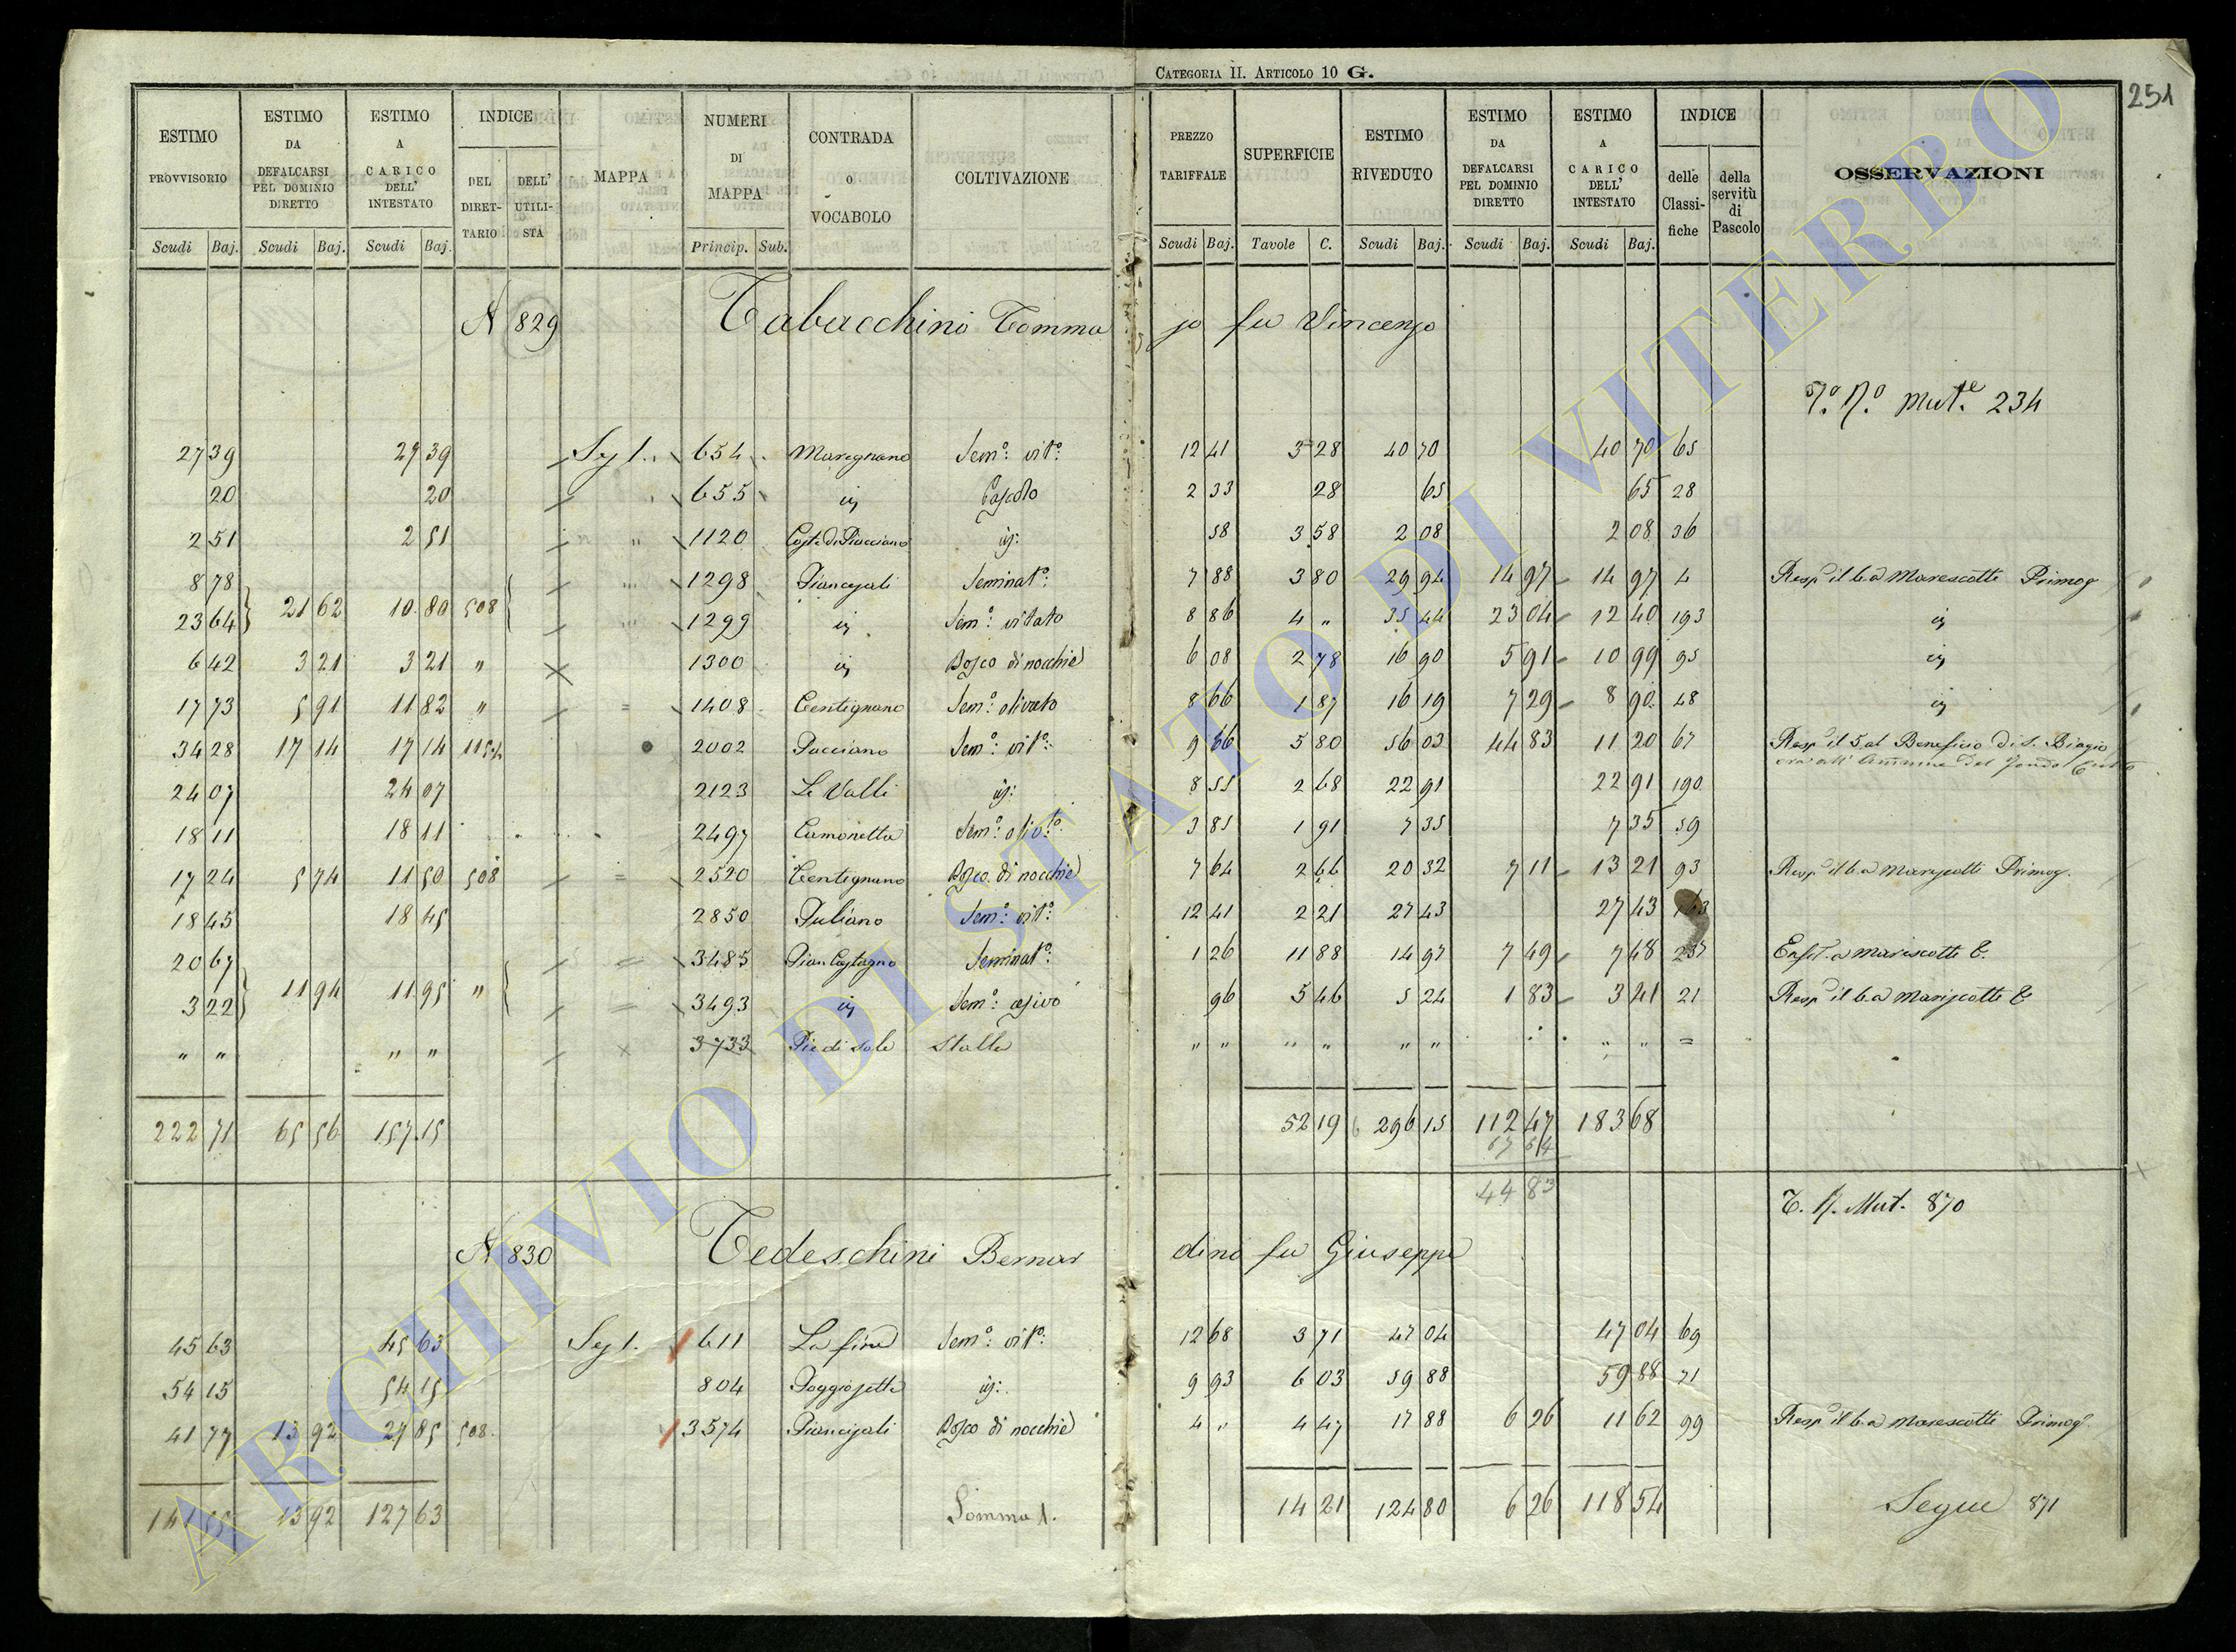 CATEGORIA II. ARTICOLO 10 G.
251
ESTIMO PROVVISORIO | ESTIMO DA DEFALCARSI PEL DOMINIO DIRETTO | ESTIMO A CARICO DELL' INTESTATO | INDICE DEL DIRETTARIO | DELL' UTILISTA | MAPPA | NUMERI DI MAPPA | CONTRADA O VOCABOLO | COLTIVAZIONE | PREZZO TARIFFALE | SUPERFICIE | ESTIMO RIVEDUTO | ESTIMO DA DEFALCARSI PEL DOMINIO DIRETTO | ESTIMO A CARICO DELL' INTESTATO | INDICE delle Classifiche | della servitù di Pascolo | OSSERVAZIONI
Scudi Baj. | Scudi Baj. | Scudi Baj. | Princip. Sub. | Scudi Baj. | Tavole C. | Scudi Baj. | Scudi Baj. | Scudi Baj.
N 829 Tabacchini Tommaso fu Vincenzo
Mut.e 234
27 39 | 27 39 | Sez 1. | 654 | Maregnano | Sem.o vit.o | 12 41 | 3 28 | 40 70 | 40 70 | 65
20 | 20 | 655 | Pascolo | 2 33 | 28 | 65 | 65 | 28
2 51 | 2 51 | " | 1120 | 58 | 3 58 | 2 08 | 2 08 | 36
8 78 | 1298 | Piancasali | Seminat.o | 7 88 | 3 80 | 29 94 | 14 97 | 14 97 | 4 | Resp. il 6.a Marescotti Primog
23 64 | 21 62 | 10 80 | 508 | 1299 | Sem.o vitato | 8 86 | 4 " | 35 44 | 23 04 | 12 40 | 193
6 42 | 3 21 | 3 21 | " | 1300 | Bosco di nocchie | 6 08 | 2 78 | 16 90 | 5 91 | 10 99 | 95
17 73 | 5 91 | 11 82 | " | 1408 | Centignano | Sem.o olivato | 8 66 | 1 87 | 16 19 | 7 29 | 8 90 | 48
34 28 | 17 14 | 17 14 | 2002 | Pacciano | Sem.o vit.o | 9 66 | 5 80 | 56 03 | 44 83 | 11 20 | 67 | Resp. il 5.al Beneficio di S. Biagio
24 07 | 24 07 | 2123 | Le Valli | 8 55 | 2 68 | 22 91 | 22 91 | 190
18 11 | 18 11 | 2497 | Camonetta | Sem.o oliv.to | 3 85 | 1 91 | 7 35 | 7 35 | 59
17 24 | 5 74 | 11 50 | 508 | 2520 | Centignano | Bosco di nocchie | 7 64 | 2 66 | 20 32 | 7 11 | 13 21 | 93 | Resp. il 6.a Marescotti Primog.
18 45 | 18 45 | 2850 | Juliano | Sem.o vit.o | 12 41 | 2 21 | 27 43 | 27 43
20 67 | 3485 | Pian Castagno | Seminat.o | 1 26 | 11 88 | 14 97 | 7 49 | 7 48 | 237 | Enfit. a Marescotti C.
3 22 | 11 94 | 11 95 | " | 3493 | Sem.o | 96 | 5 46 | 5 24 | 1 83 | 3 41 | 21 | Resp. il 6.a Marescotti C
" " | " " | 3733 | Piè di Sole | Stalla | " " | " " | " " | " " | =
222 71 | 65 56 | 157 15 | 52 19 | 296 15 | 112 47 | 183 68
67 64
44 83
T. N. Mut. 870
N 830 Tedeschini Bernardino fu Giuseppe
45 63 | 45 63 | Sez 1. | 611 | Sem.o vit.o | 12 68 | 3 71 | 47 04 | 47 04 | 69
54 15 | 54 15 | 804 | Poggiosette | 9 93 | 6 03 | 59 88 | 59 88 | 71
41 77 | 13 92 | 27 85 | 508 | 3574 | Piancasali | Bosco di nocchie | 4 " | 4 47 | 17 88 | 6 26 | 11 62 | 99 | Resp. il 6.a Marescotti Primog.
141 55 | 13 92 | 127 63 | Somma 1. | 14 21 | 124 80 | 6 26 | 118 54 | Segue 871
ARCHIVIO DI STATO DI VITERBO